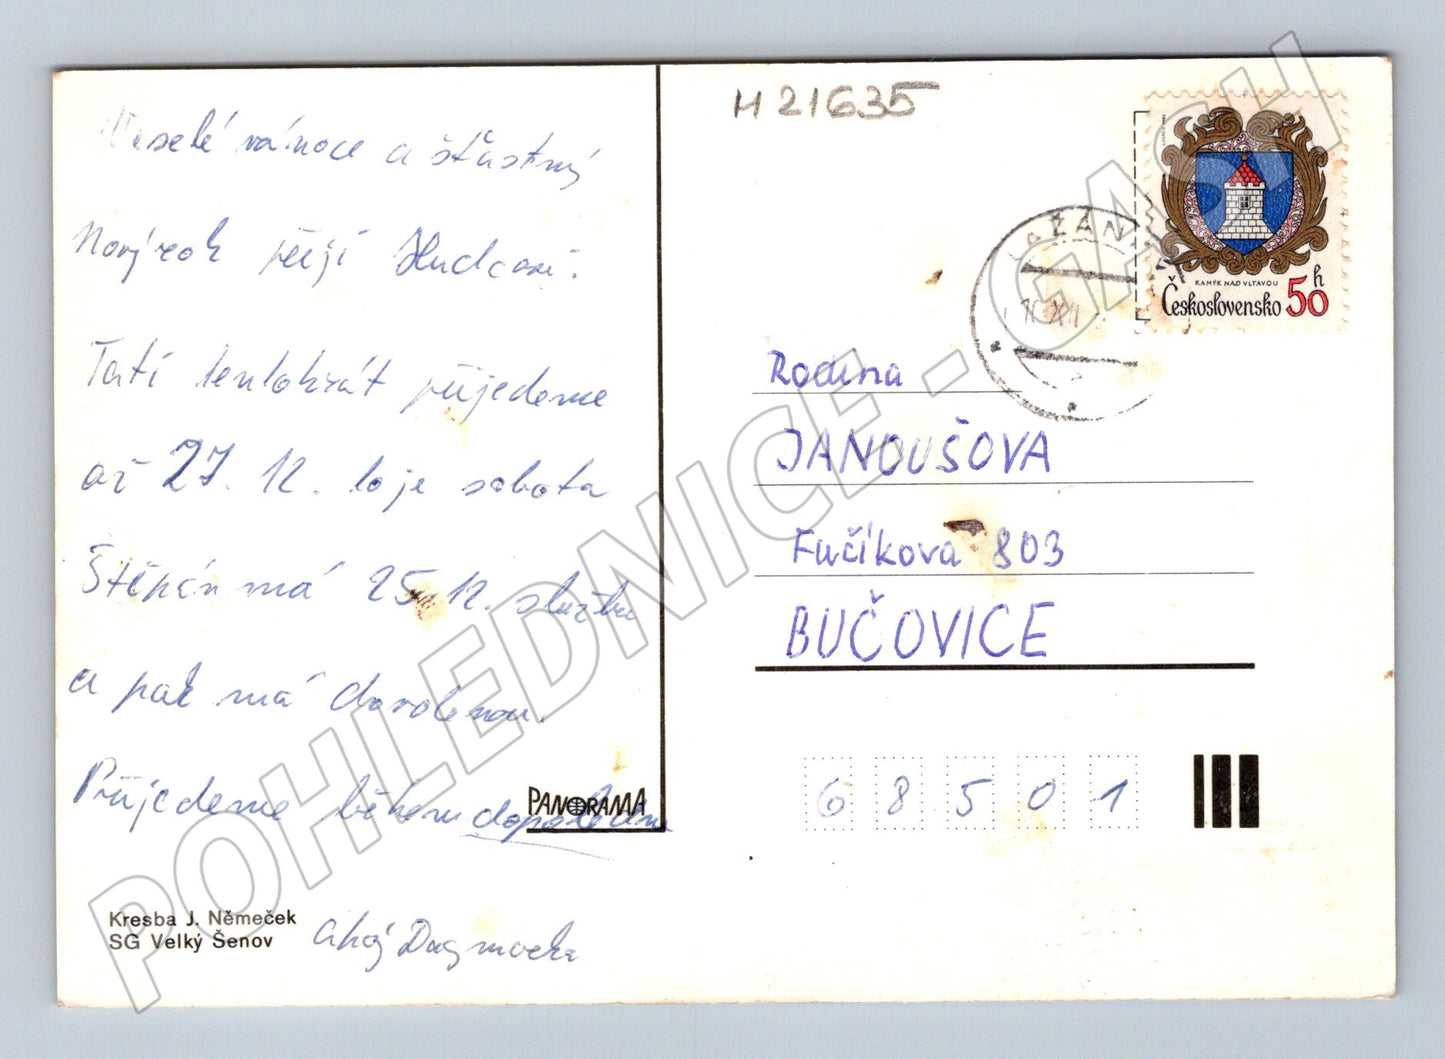 Veselé vánoce a šťastný
Nový rok přejí Hudcovi.
Tatí tentokrát přijedeme
až 27. 12. to je sobota
Štěpán má 25. 12. službu
a pak má dovolenou.
Přijedeme během dopoledne
ahoj Dagmarka
Kresba J. Němeček
SG Velký Šenov
PANORAMA
H 21635
KAMÝK NAD VLTAVOU
Československo 50 h
Rodina
JANOUŠOVA
Fučíkova 803
BUČOVICE
68501
POHLEDNICE - GASH